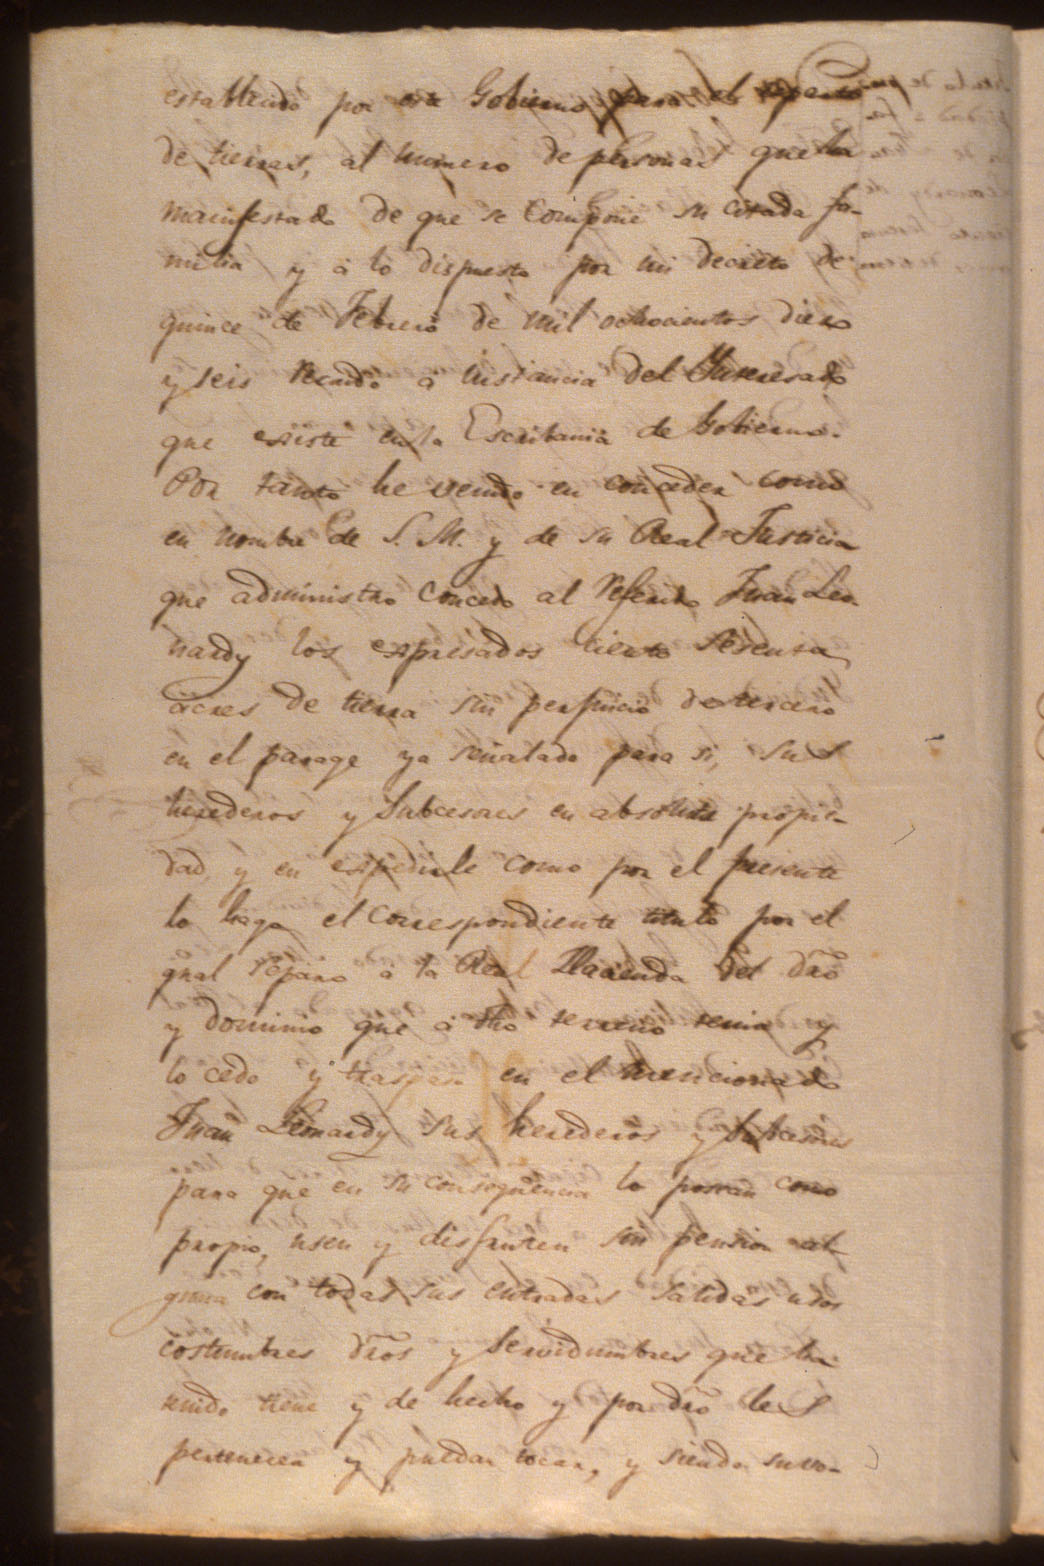 establecido por este Gobierno para el reparto
de tierras, al numero de personas que ha
manifestado de que se compone su citada fa-
milia y á lo dispuesto por mi decreto de
quince de Febrero de mil ochocientos diez
y seis recaido á instancia del Interesado
que existe en la Escribania de Gobierno.
Por tanto he venido en conceder como
en nombre de S. M. y de su Real Justicia
que administro concedo al referido Juan Leo-
nardy los expresados ciento sesenta
acres de tierra sin perjuicio de tercero
en el parage ya señalado para si, sus
herederos y subcesores en absoluta propie-
dad, y en espedirle como por el presente
lo hago el correspondiente titulo por el
qual separo á la Real Hacienda del dro
y dominio que á dho terreno tenia y
lo cedo y traspaso en el mencionado
Juan Leonardy sus herederos y subcesores
para que en su consequencia lo posean como
propio, usen y disfruten sin pension al-
guna con todas sus entradas salidas usos
costumbres dros y servidumbres que ha
tenido tiene y de hecho y por dro les
pertenecen y puedan tocar, y siendo su vo-